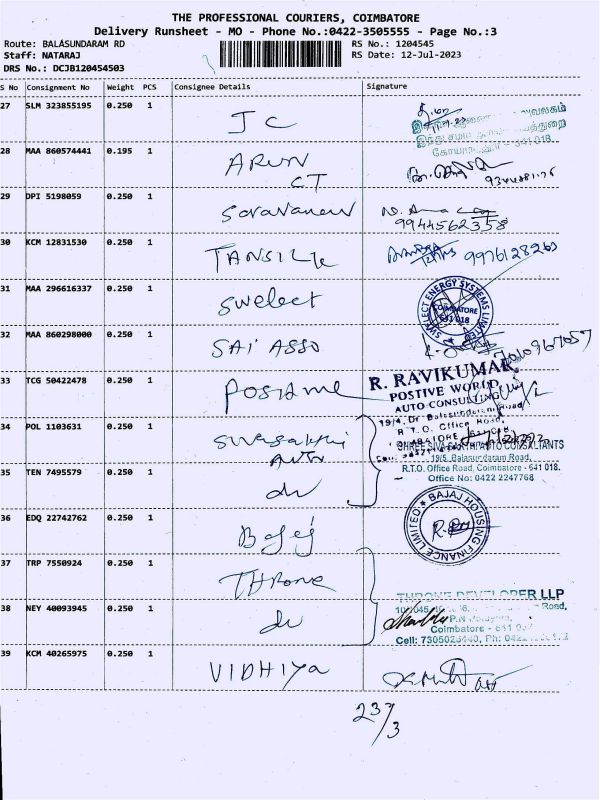 THE PROFESSIONAL COURIERS, COIMBATORE
Delivery Runsheet - MO - Phone No.:0422-3505555 - Page No.:3
Route: BALASUNDARAM RD
RS No.: 1204545
Staff: NATARAJ
RS Date: 12-Jul-2023
DRS No.: DCJB120454503
S No Consignment No Weight PCS Consignee Details Signature
27 SLM 323855195 0.250 1 JC
28 MAA 860574441 0.195 1 ARUN
CT
29 DPI 5198059 0.250 1 Saravanan
9944562358
30 KCM 12831530 0.250 1 9976128263
31 MAA 296616337 0.250 1 Swelect
SWELECT ENERGY SYSTEMS LIMITED
COIMBATORE
641 018
32 MAA 860298000 0.250 1 SAI ASSO
33 TCG 50422478 0.250 1
R. RAVIKUMAR
POSTIVE WORLD
AUTO CONSULTING
19/4, Dr Balasundaram Road
R.T.O. Office Road,
34 POL 1103631 0.250 1
AUTO
SHREE SIVASAKTHI AUTO CONSULTANTS
19/5, Balasundaram Road,
R.T.O. Office Road, Coimbatore - 641 018.
Office No: 0422 2247768
35 TEN 7495579 0.250 1 do
36 EDQ 22742762 0.250 1 Bajaj
BAJAJ HOUSING FINANCE LIMITED
37 TRP 7550924 0.250 1 THRONE
38 NEY 40093945 0.250 1 do
THRONE DEVELOPER LLP
Road,
Coimbatore - 641
Cell: 7305025440, Ph: 0422
39 KCM 40265975 0.250 1 VIDHIYA
237/3